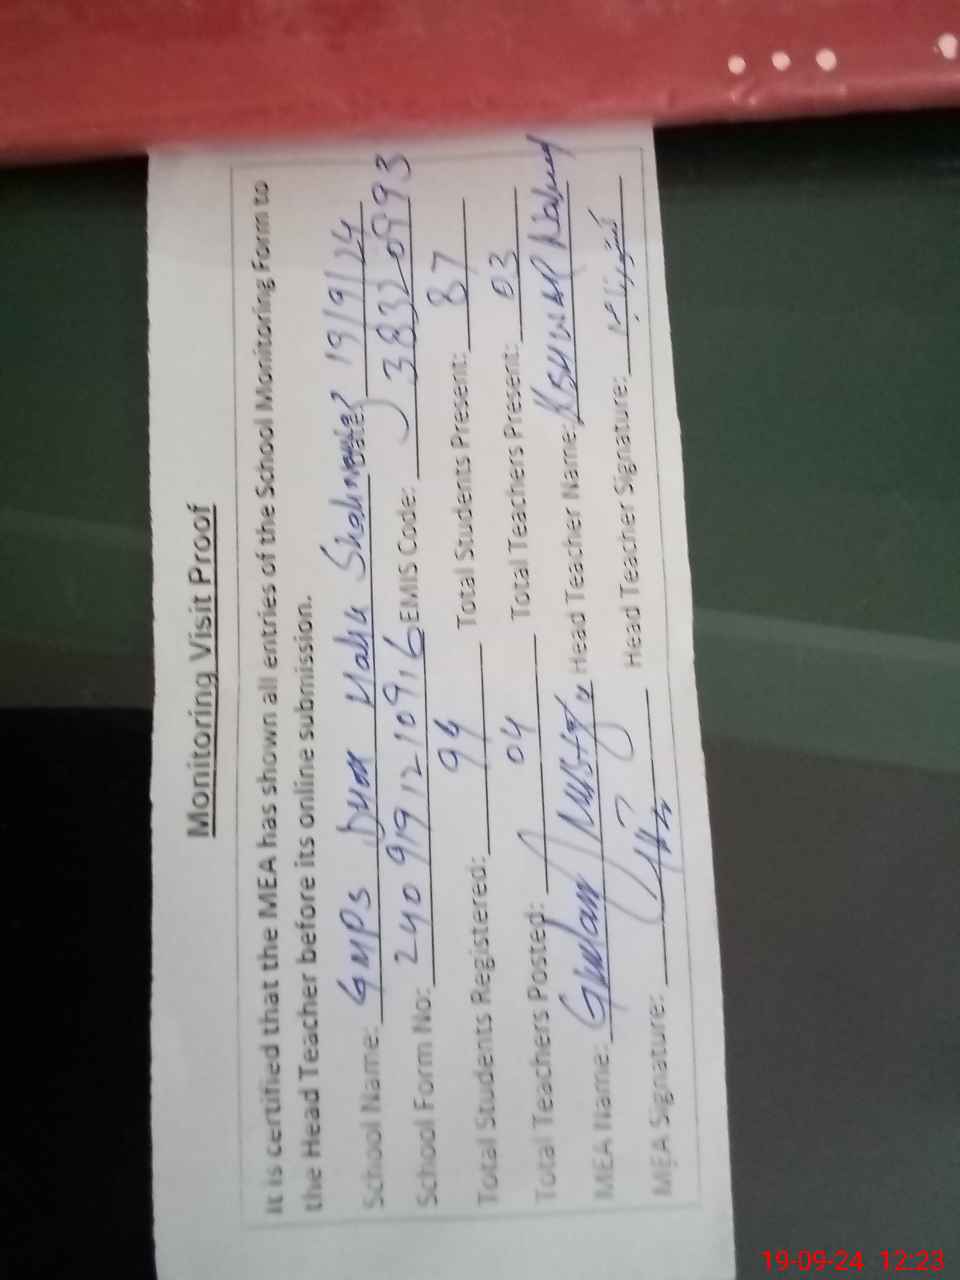 Monitoring Visit Proof
It is certified that the MEA has shown all entries of the School Monitoring Form to
the Head Teacher before its online submission.
School Name: GMPS Date: 19/9/24
School Form No: 2409191210916 EMIS Code: 38320993
Total Students Registered: 94 Total Students Present: 87
Total Teachers Posted: 04 Total Teachers Present: 03
MEA Name: Ghulam Mustafa Head Teacher Name:
MEA Signature: Head Teacher Signature:
19-09-24 12:23